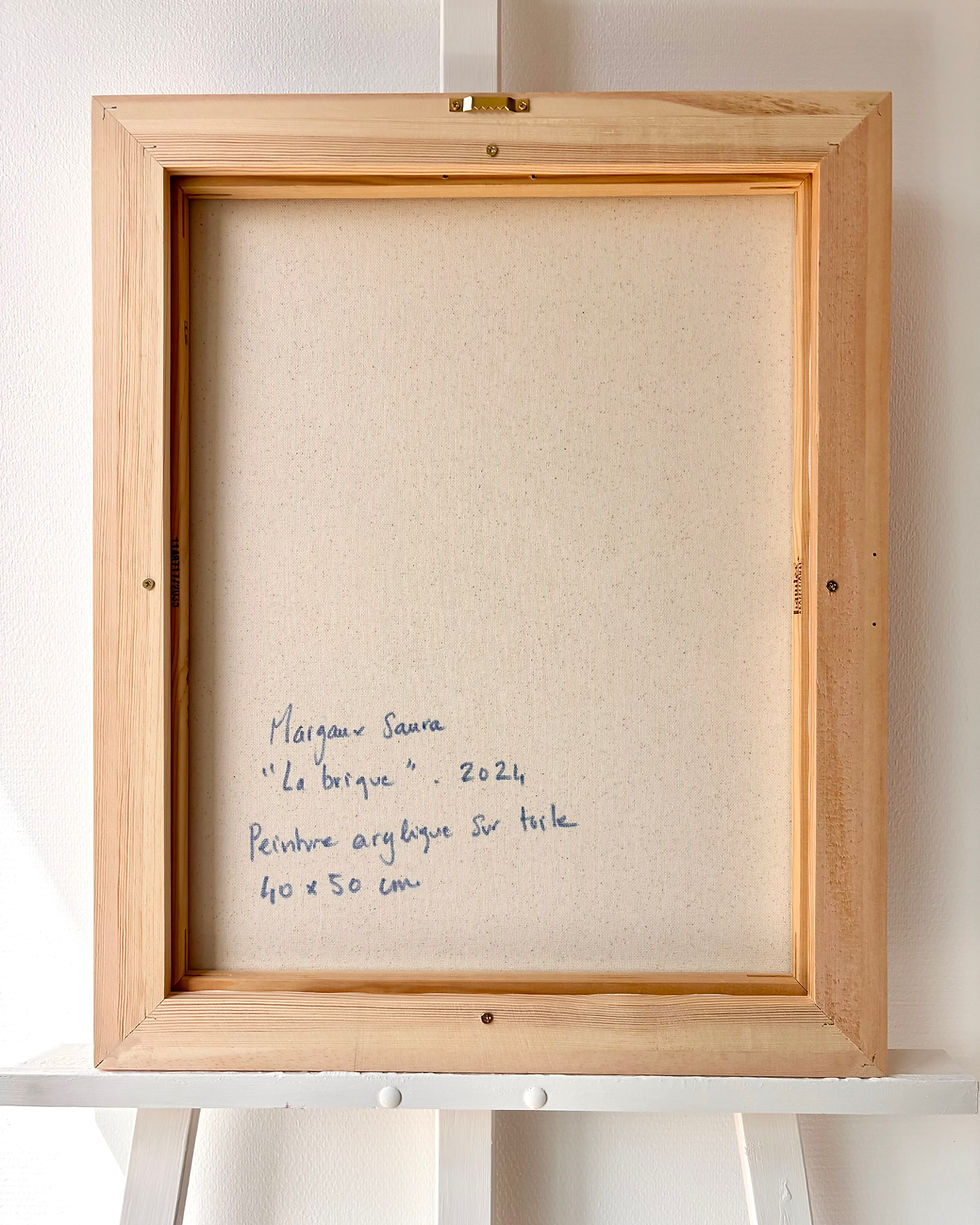 Margaux Saura
"La brique". 2024
Peinture arylique sur toile
40 x 50 cm